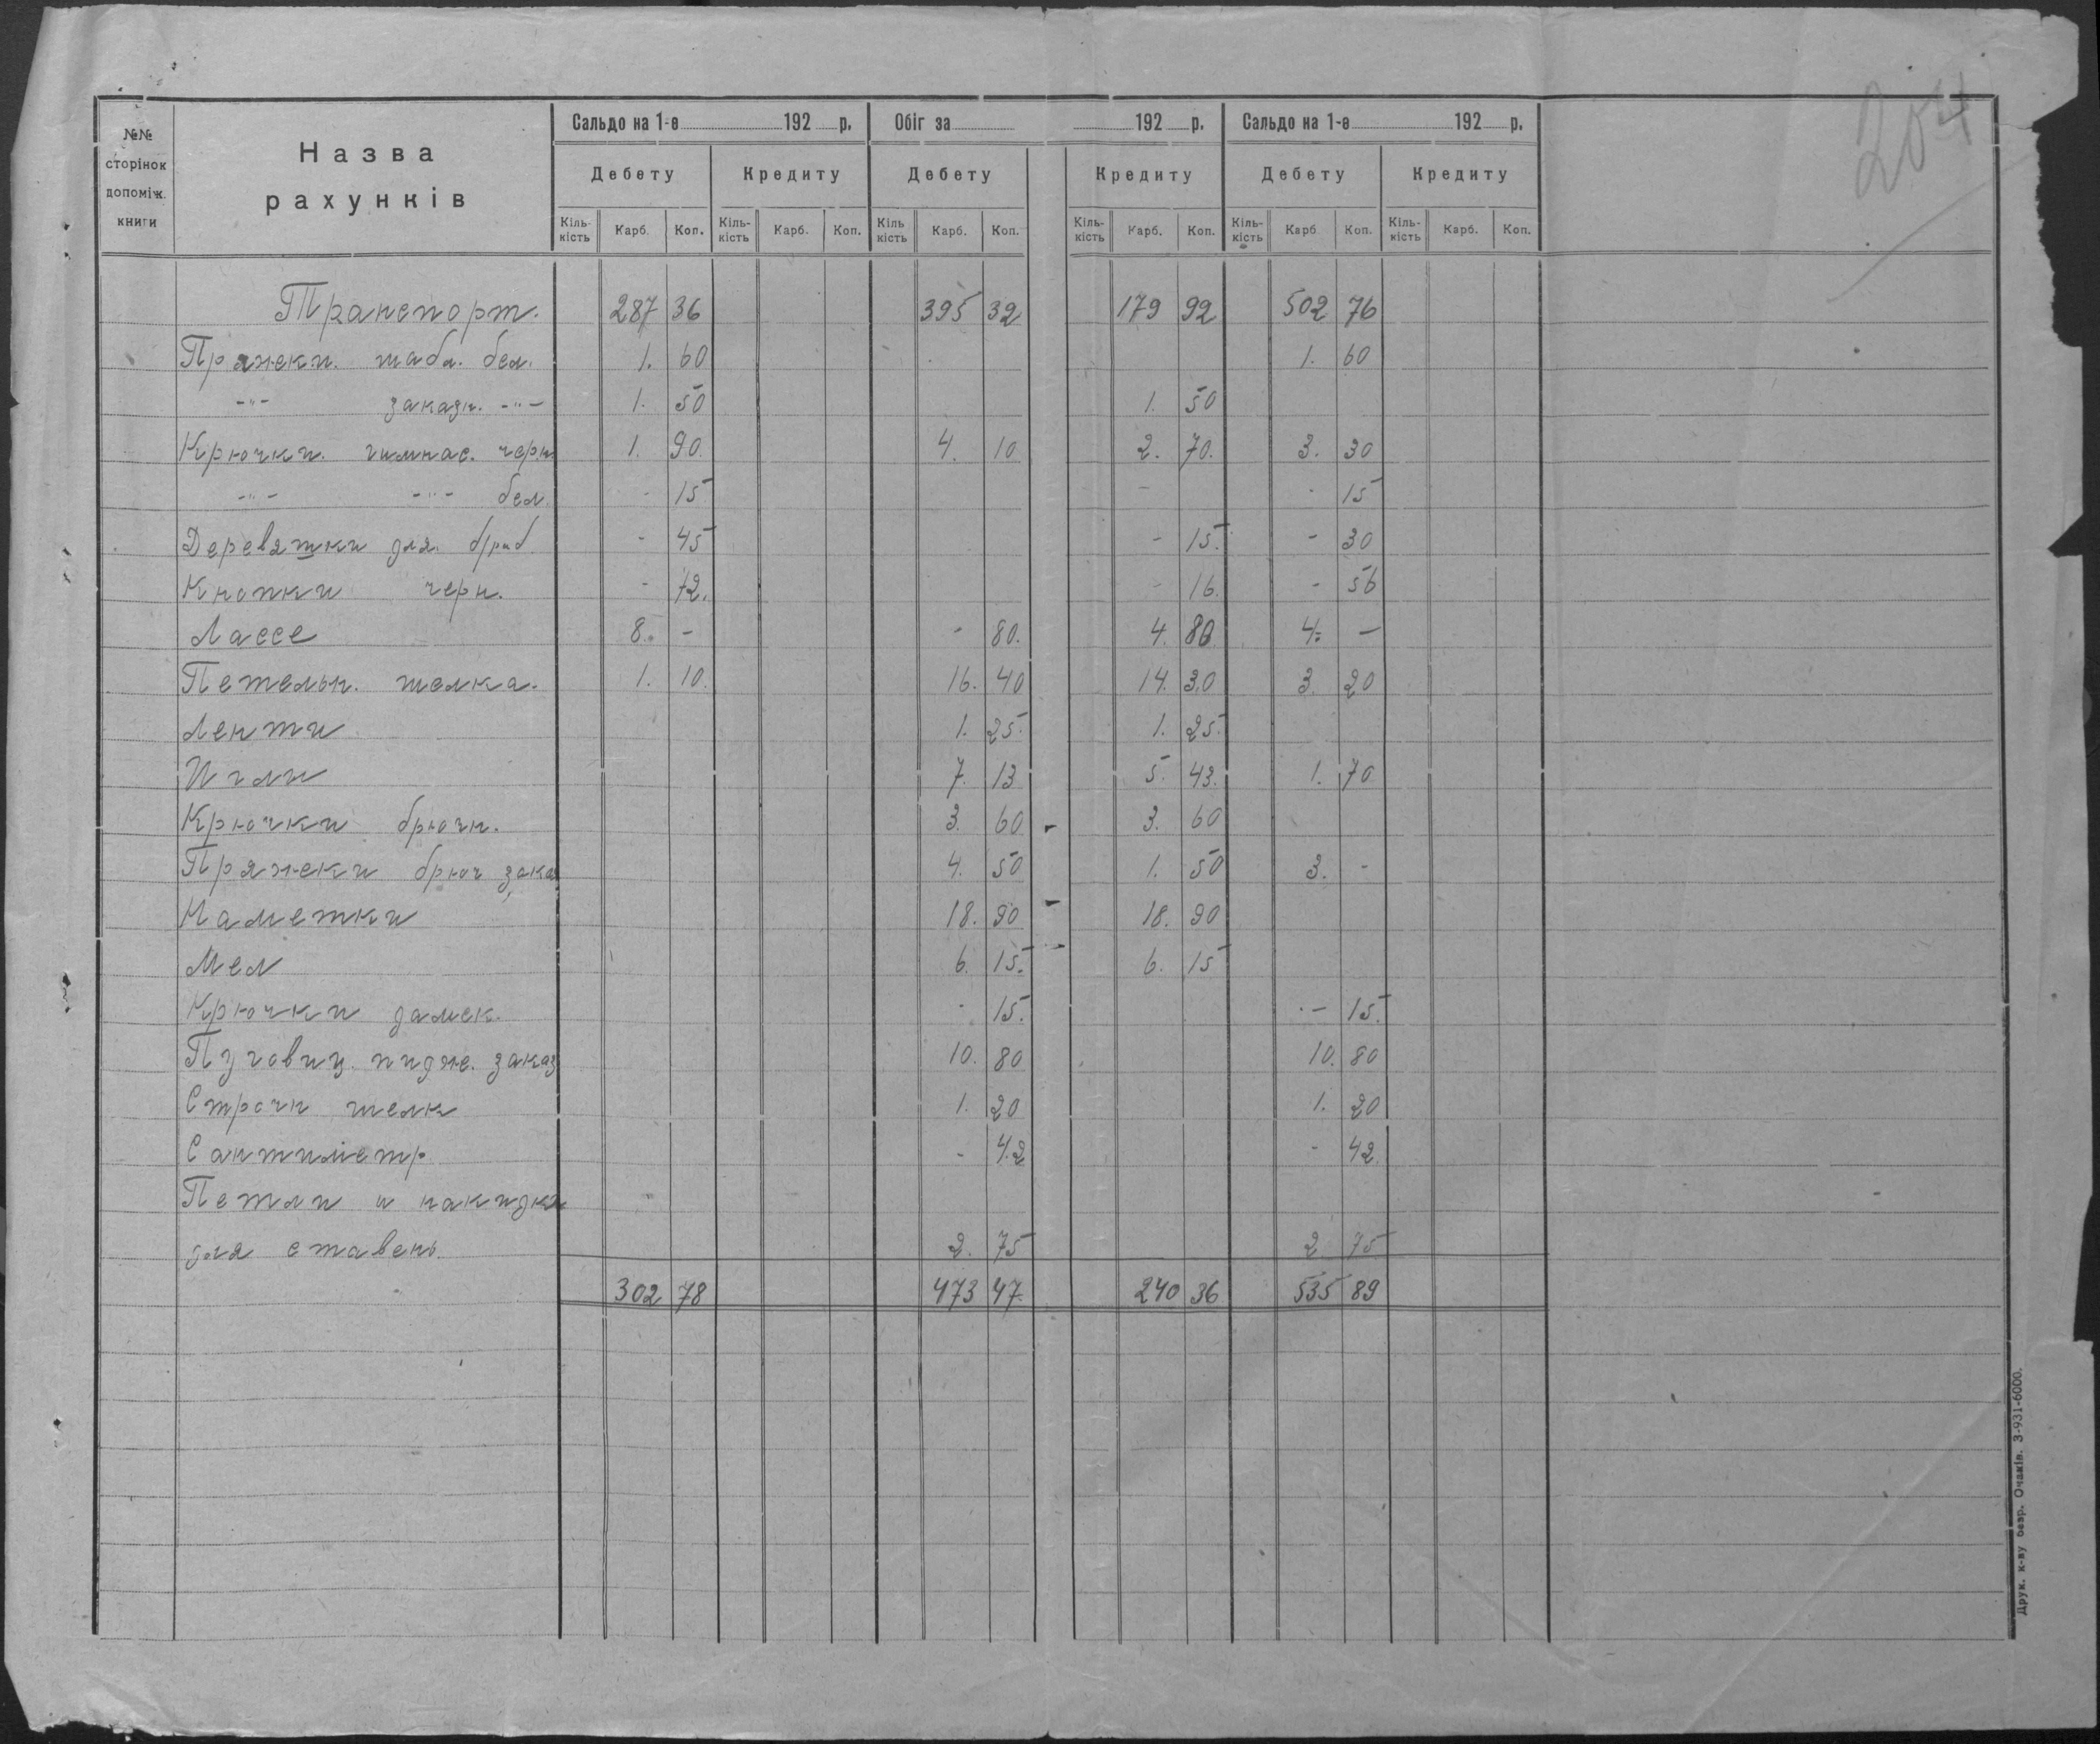 204
№№ сторінок допоміж. книги
Назва рахунків
Сальдо на 1-е 192 р. Обіг за 192 р. Сальдо на 1-е 192 р.
Дебету Кредиту Дебету Кредиту Дебету Кредиту
Кіль-кість Карб. Коп. Кіль-кість Карб. Коп. Кіль кість Карб. Коп. Кіль-кість Карб. Коп. Кіль-кість Карб Коп. Кіль-кість Карб. Коп.
Транспорт. 287 36 395 32 179 92 502 76
Пряжеки. шабл. бел. 1. 60 1. 60
-"- заказн. -"- 1. 50 1. 50
Крючки. гимнас. черн. 1. 90. 4. 10 2. 70. 3. 30
-"- -"- бел. - 15 - - 15
Деревяшки для - 45 - 15. - 30
Кнопки черн. - 72. - 16. - 56
Лассе 8. - - 80. 4. 80 4. -
Петельн. шелка. 1. 10. 16. 40 14. 30 3. 20
Ленти 1. 25. 1. 25.
Иглы 7. 13 5. 43. 1. 70
Крючки брючн. 3. 60 3. 60
Пряжеки брюч зака 4. 50 1. 50 3. -
Наметки 18. 90 18. 90
Мел 6. 15. 6. 15
Крючки дамск. - 15. - 15.
Пуговиц. пидж. заказ 10. 80 10. 80
Строчн шелк 1. 20 1. 20
Сантиметр - 42 - 42.
Петли и накидки
для ставень 2. 75 2 75
302 78 473 47. 240 36 535 89
Друк. к-ву безр. Очаків. З-931-6000.